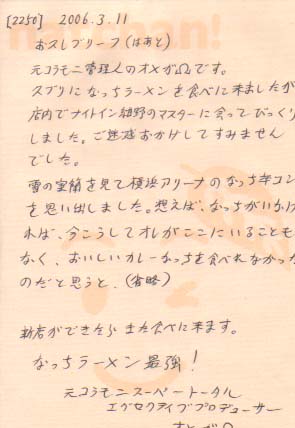 [2250] 2006.3.11
おスレブリーフ(はあと)
元コラモニ管理人のオメガΩです。
スブリになっちラーメンを食べに来ましたが
店内でナイトイン 野のマスターに会ってびっくり
しました。ご迷惑おかけしてすみません
でした。
雪の実 を見て横浜アリーナのなっち卒コン
を思い出しました。想えば、なっちがいなけ
れば、今こうしてオレがここにいることも
なく、おいしいカレーなっちを食べれなかった
のだと思うと、(省略)
新店ができたら また食べに来ます。
なっちラーメン最強!
元コラモニスーパートータル
エグゼクティブプロデューサー